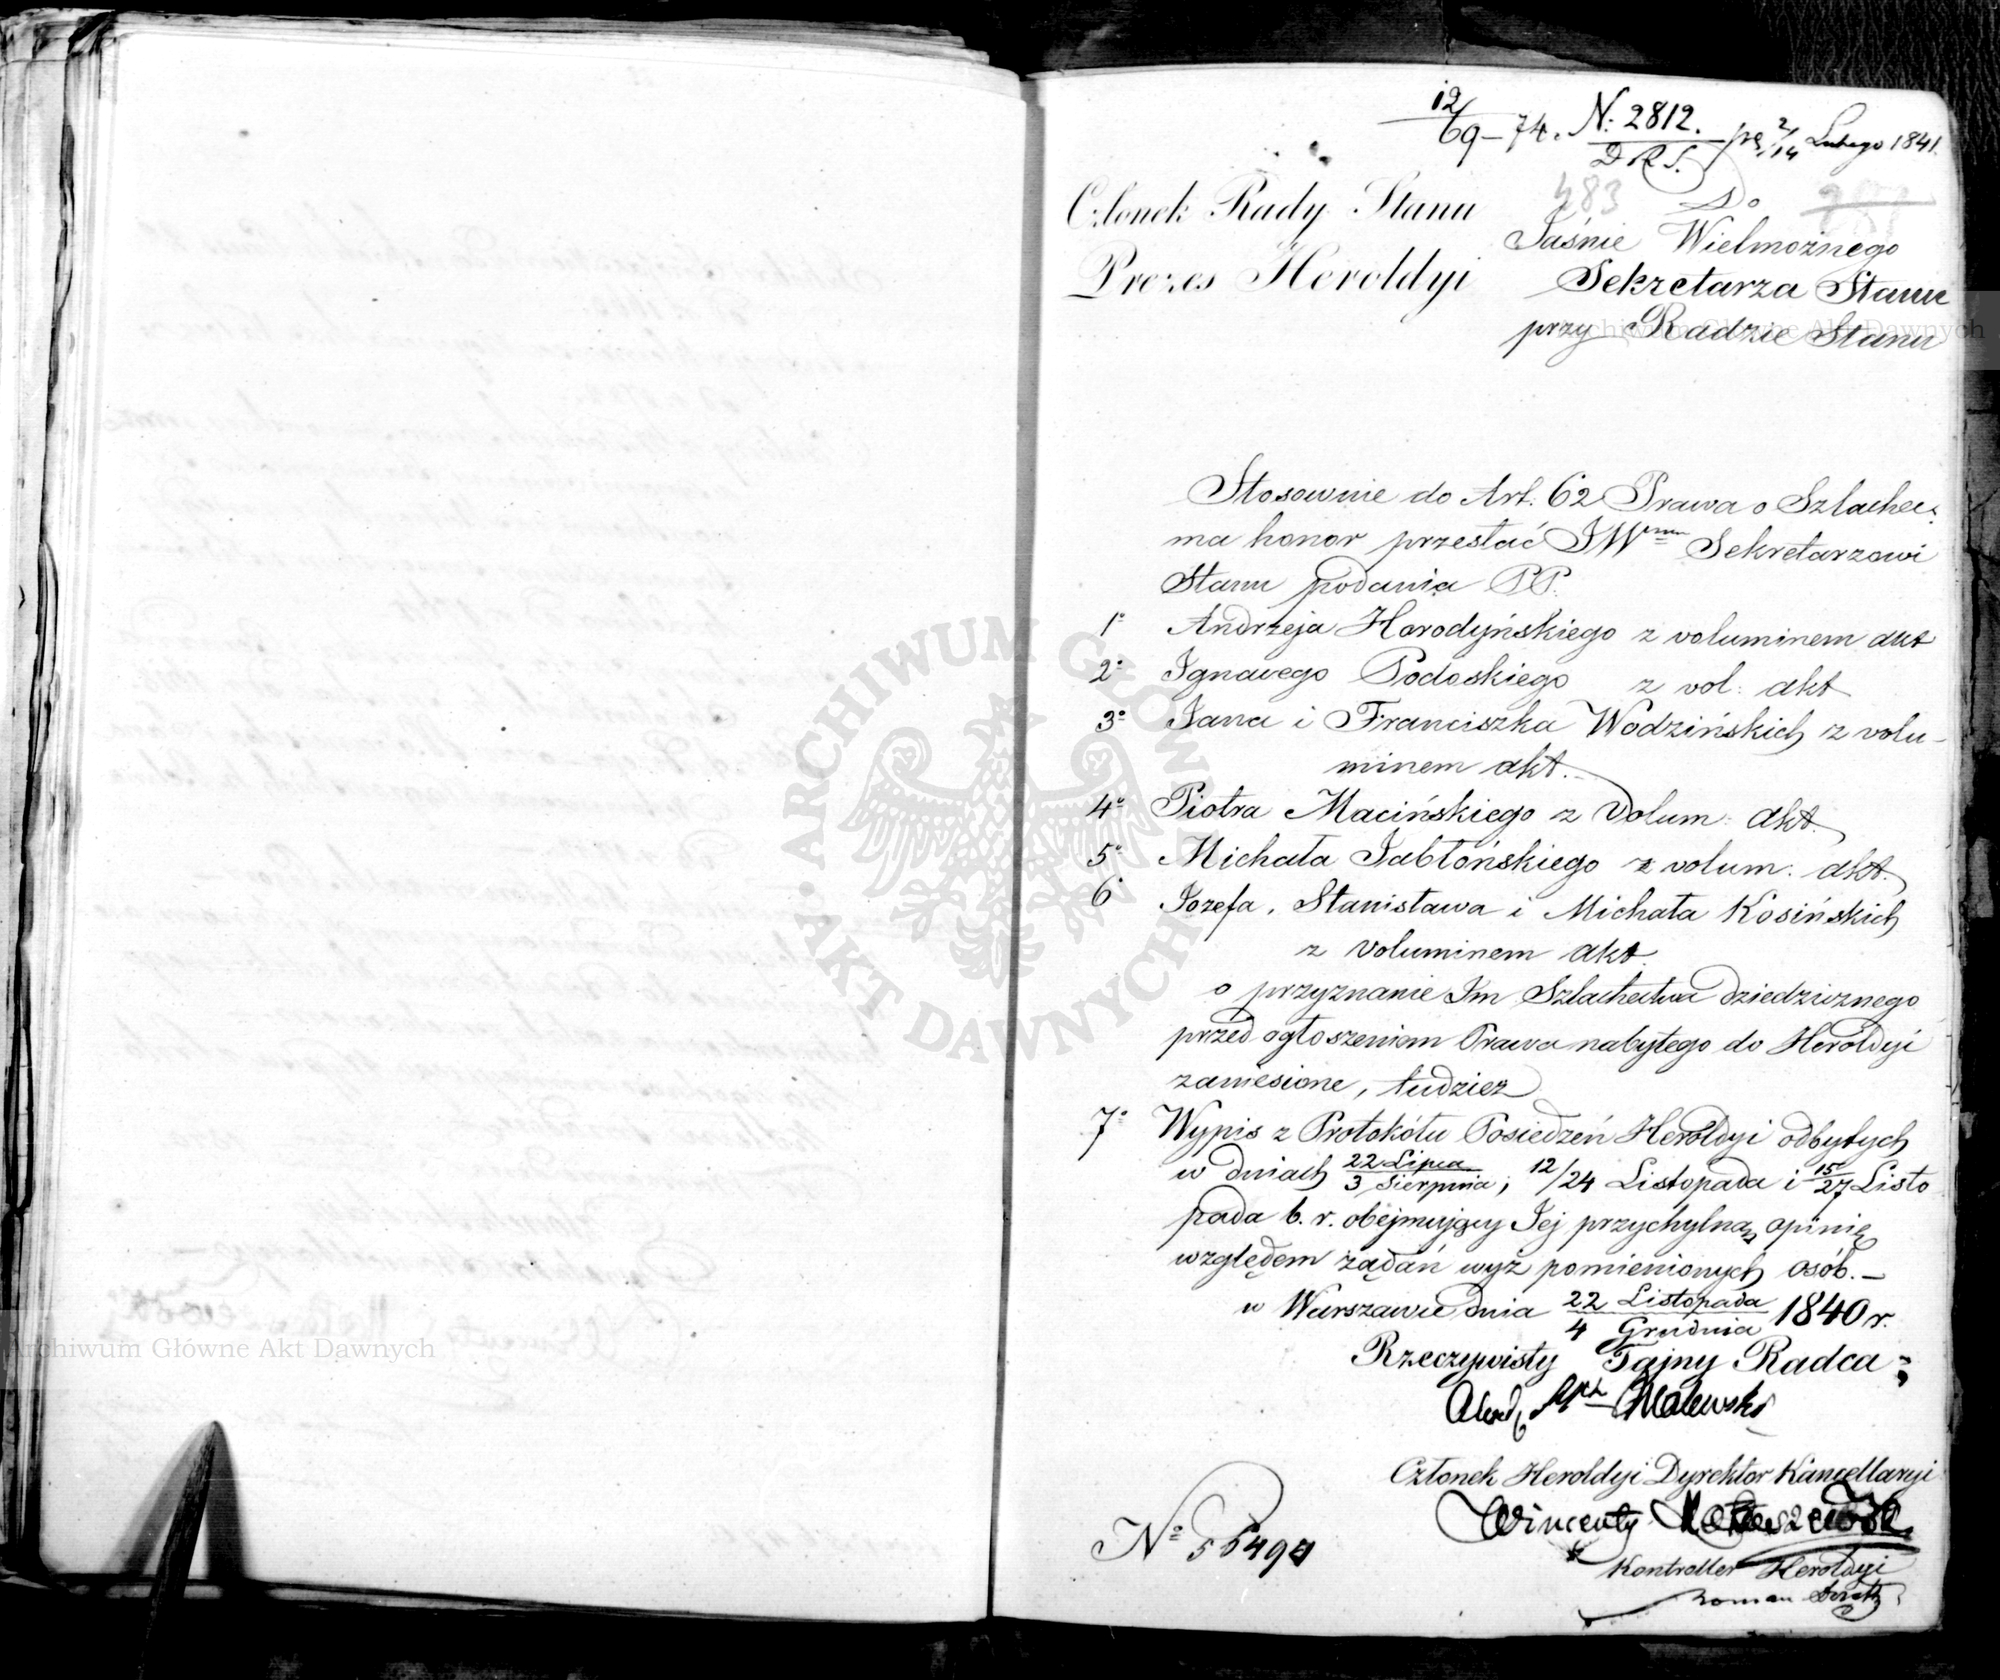 12/69 – 74. N: 2812. / D R S. 2/14 Lutego 1841.
483
Członek Rady Stanu
Prezes Heroldyi
Do
Jaśnie Wielmożnego
Sekretarza Stanu
przy Radzie Stanu
Stosownie do Art. 62 Prawa o Szlachec:
ma honor przesłać JWmu Sekretarzowi
Stanu podania PP.
1° Andrzeja Horodyńskiego z voluminem akt
2° Ignacego Podoskiego z vol: akt
3° Jana i Franciszka Wodzińskich z volu-
minem akt.
4° Piotra Macińskiego z Volum: akt.
5° Michała Jabłońskiego z volum: akt.
6° Józefa, Stanisława i Michała Kosińskich
z voluminem akt.
o przyznanie Im Szlachectwa dziedzicznego
przed ogłoszeniem Prawa nabytego do Heroldyi
zaniesione, tudzież
7° Wypis z Protokółu Posiedzeń Heroldyi odbytych
w dniach 22 Lipca/3 Sierpnia; 12/24 Listopada i 15/27 Listo
pada b. r. obejmujący Jej przychylną opinię
względem żądań wyż pomienionych osób. –
w Warszawie dnia 22 Listopada/4 Grudnia 1840 r.
Rzeczywisty Tajny Radca;
Członek Heroldyi Dyrektor Kancellaryi
Wincenty
N° 56494
Kontroller Heroldyi
Roman
ARCHIWUM GŁÓWNE AKT DAWNYCH
Archiwum Główne Akt Dawnych
Archiwum Główne Akt Dawnych